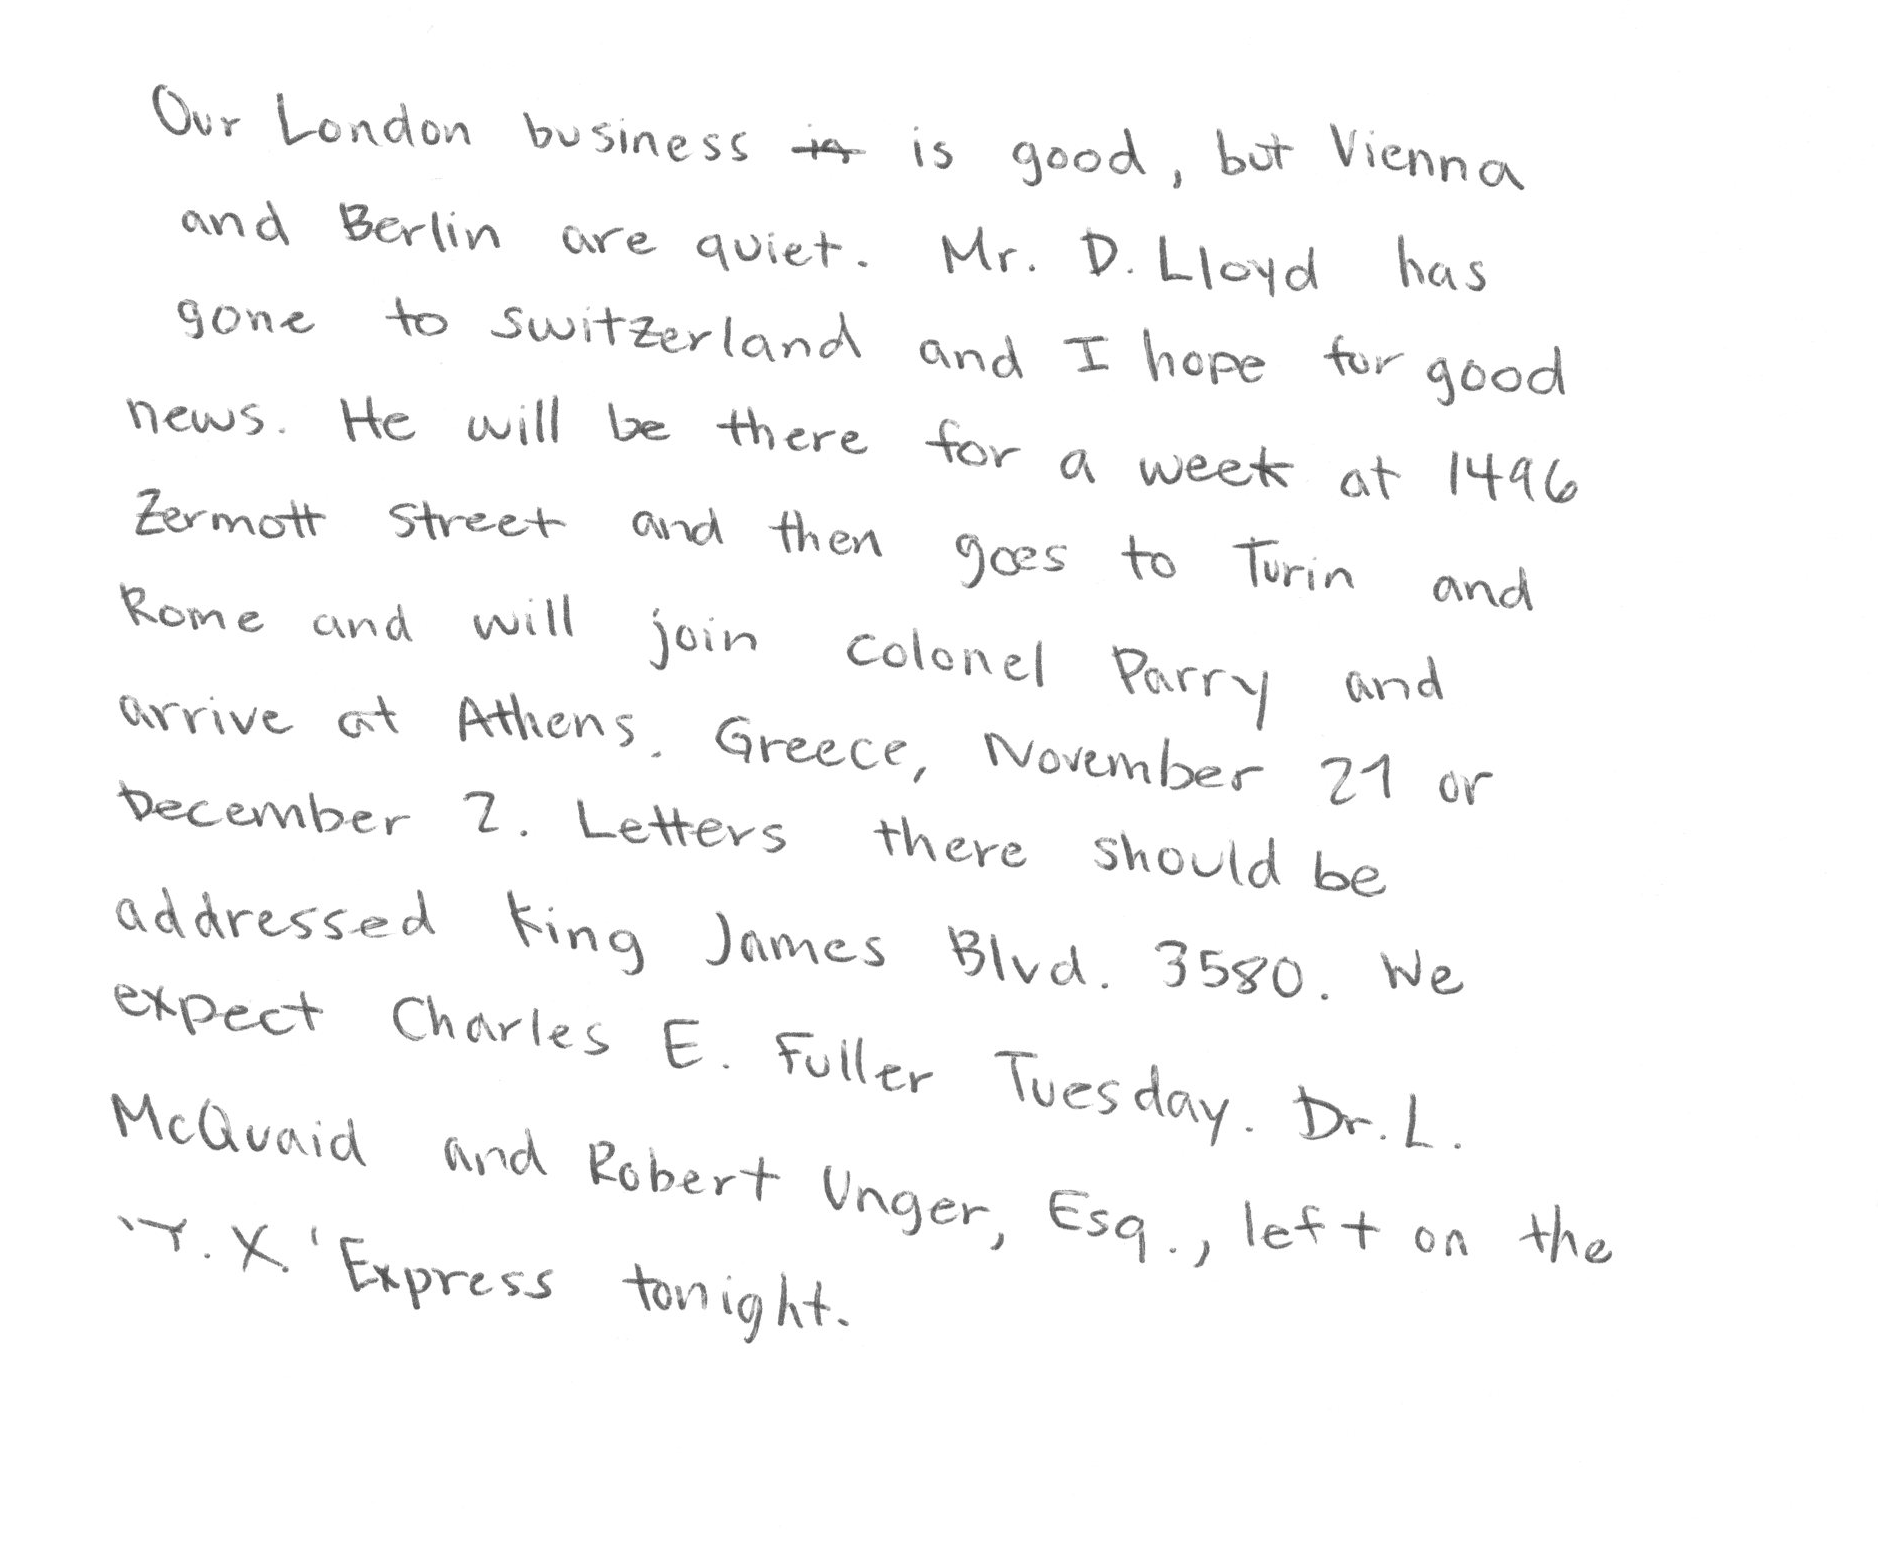 Our London business is good, but Vienna
and Berlin are quiet. Mr. D. Lloyd has
gone to Switzerland and I hope for good
news. He will be there for a week at 1496
Zermott Street and then goes to Turin and
Rome and will join Colonel Parry and
arrive at Athens, Greece, November 21 or
December 2. Letters there should be
addressed King James Blvd. 3580. We
expect Charles E. Fuller Tuesday. Dr. L.
McQuaid and Robert Unger, Esq., left on the
'Y.X.' Express tonight.